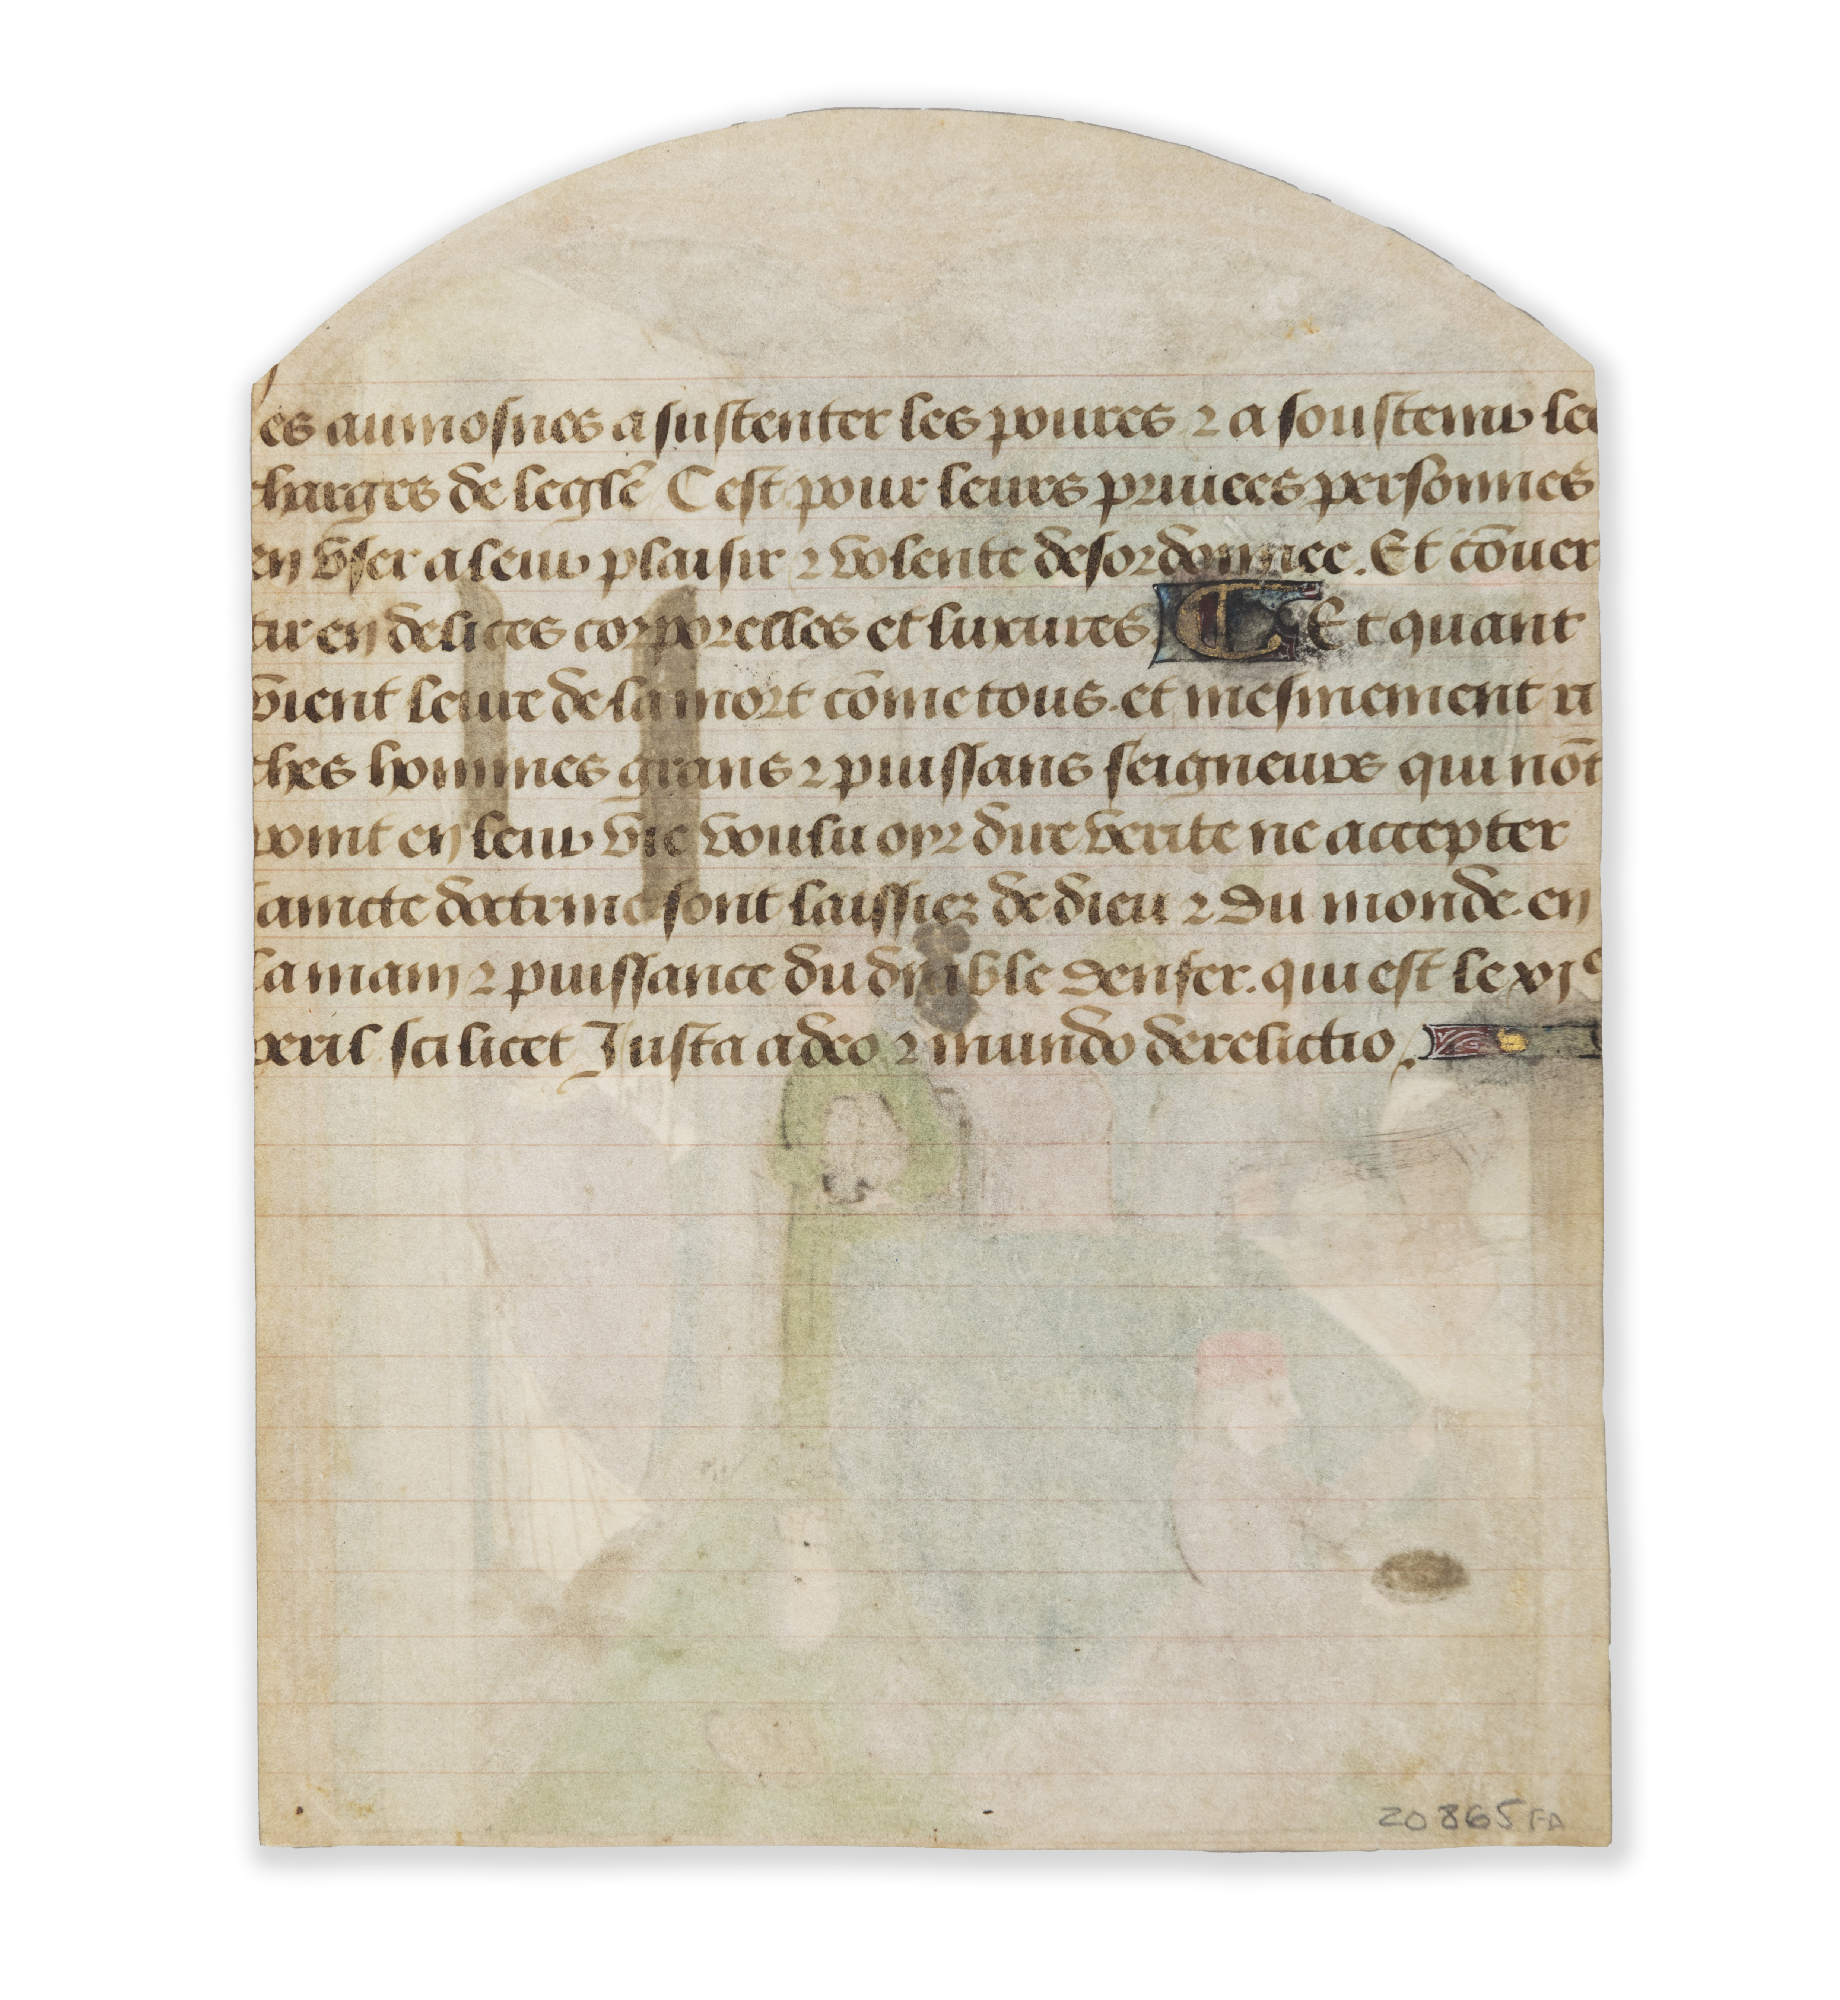 es aumosnes a sustenter les poures ⁊ a soustenir les
charges de leglē Cest pour leurs priuees personnes
en vser a leur plaisir ⁊ volente desordonnee. Et cōuer
tir en delices corporelles et luxures Et quant
vient leure de la mort cōme tous et mesmement ri
ches hommes grans ⁊ puissans seigneurs qui nōt
point en leur vie voulu oyr dire verite ne accepter
saincte doctrine sont laissiez de dieu ⁊ du monde. en
la main ⁊ puissance du diable denfer. qui est le xjᵉ
peril scilicet Justa a deo ⁊ mundo derelictio.
20865FA